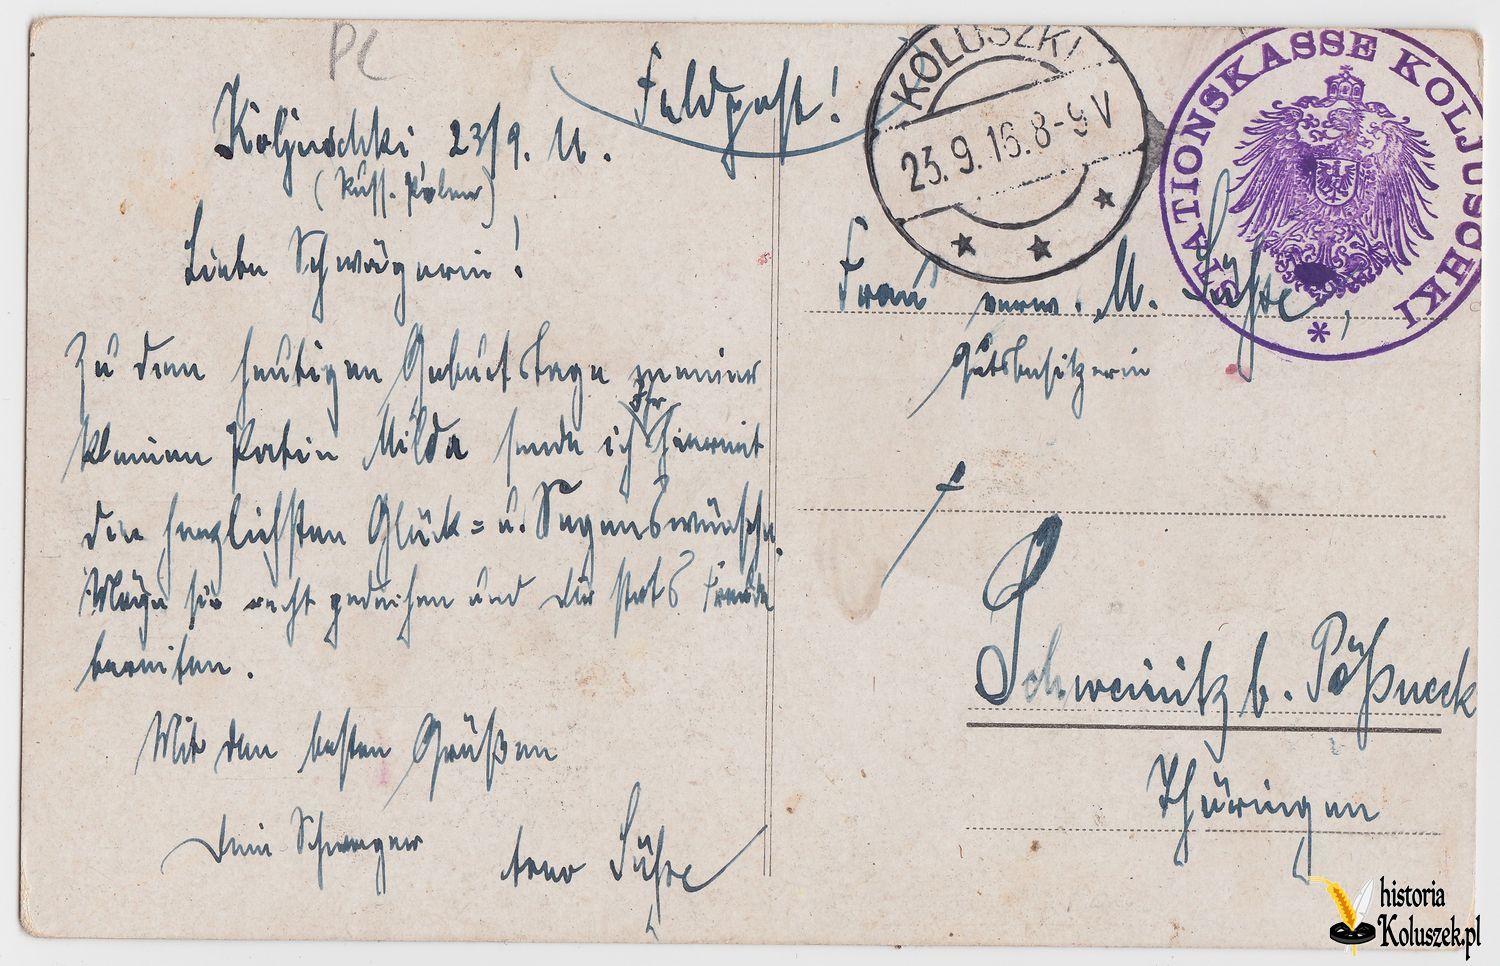 PL
Feldpost!
Koljuschki, 23/9. 16.
(Russ. Polen)
Liebe Schwägerin!
Zu dem heutigen Geburtstage meiner
kleinen Patin Milda sende ich Ihr hiermit
die herzlichsten Glück= u. Segenswünsche.
Möge sie recht gedeihen und dir stets Freude
bereiten.
Mit den besten Grüßen
Dein Schwager
KOLUSZKI
23.9.16.8-9V
STATIONSKASSE KOLJUSCHKI
Frau verw. M.
Gutsbesitzerin
Schweinitz b. Pößneck
Thüringen
historia
Koluszek.pl